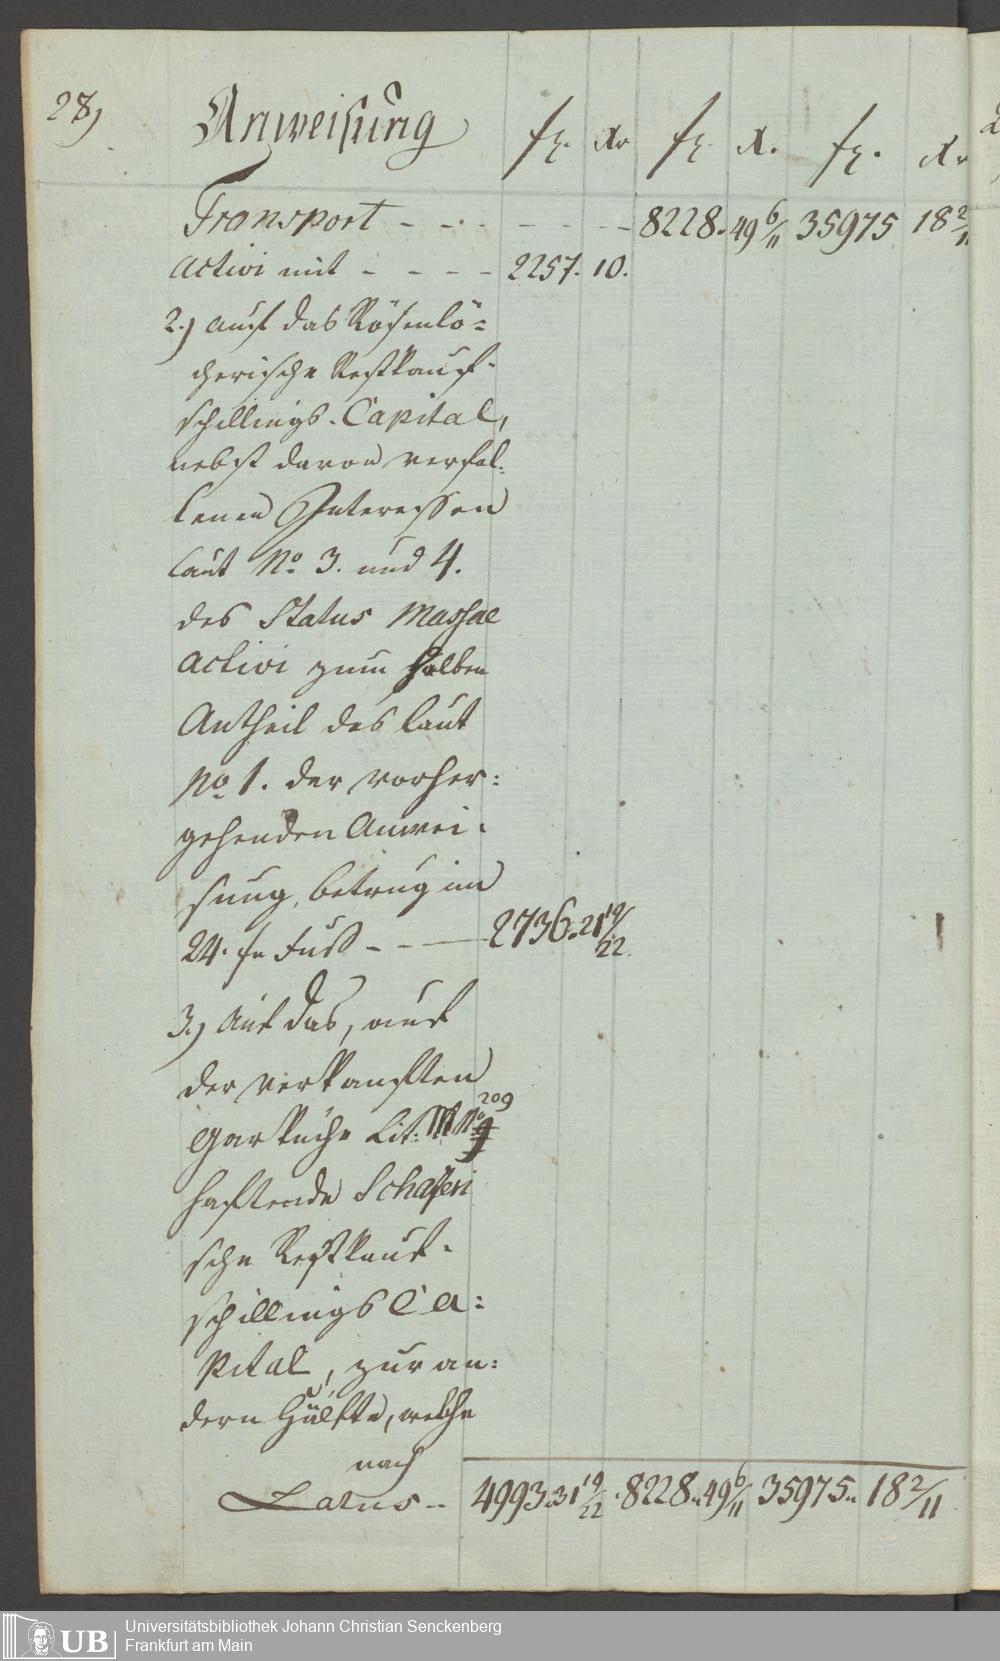 28)
Anweisung fl. Xr fl. X. fl. Xr
Transport - - - - - - 8228. 49 6/11 35975 18 2/11
Activi mit - - - - 2257. 10.
2.) auf das Rösenlö=
cherische Restkauf=
schillings-Capital,
nebst davon verfal=
lenen Interessen
laut No. 3. und 4.
des Status Massae
Activi zum halben
Antheil des laut
No. 1. der vorher=
gehenden Anwei=
sung, betrug im
24. fl Fuß - - - 2736. 21 19/22.
3.) Auf das, auf
der verkauften
Garküche Lit: M No. 209
haftende Schaferi
sche Restkauf=
schillings Ca=
pital, zur an=
dern Hälfte, welche
nach
Latus - 4993. 31 19/22. 8228. 49 6/11 35975. 18 2/11
Universitätsbibliothek Johann Christian Senckenberg
Frankfurt am Main
UB